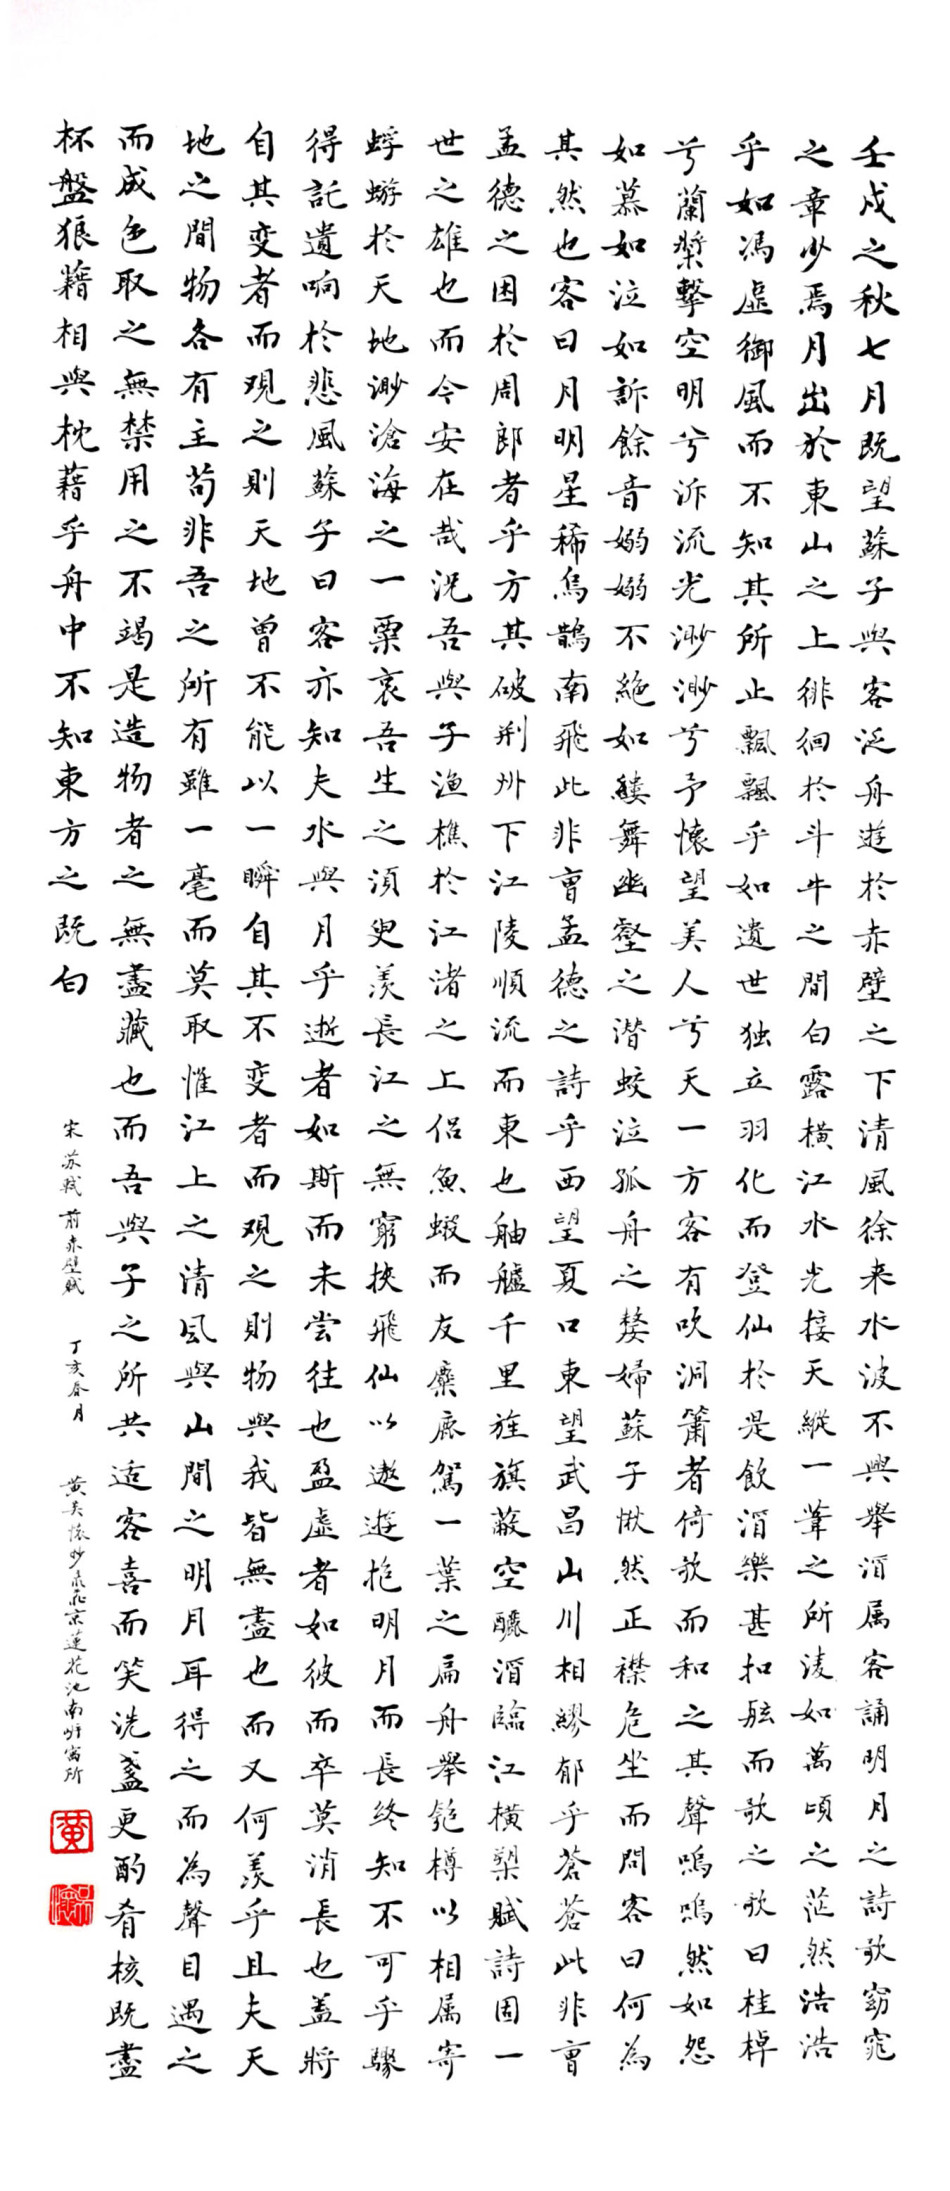 壬戌之秋七月既望蘇子與客泛舟遊於赤壁之下清風徐来水波不興舉酒属客誦明月之詩歌窈窕
之章少焉月出於東山之上徘徊於斗牛之間白露橫江水光接天縱一葦之所淩如萬頃之茫然浩浩
乎如馮虛御風而不知其所止飄飄乎如遺世独立羽化而登仙於是飲酒樂甚扣舷而歌之歌曰桂棹
兮蘭槳擊空明兮泝流光渺渺兮予懷望美人兮天一方客有吹洞簫者倚歌而和之其聲嗚嗚然如怨
如慕如泣如訴餘音嫋嫋不絕如縷舞幽壑之潜蛟泣孤舟之嫠婦蘇子愀然正襟危坐而問客曰何為
其然也客曰月明星稀烏鵲南飛此非曹孟德之詩乎西望夏口東望武昌山川相繆郁乎蒼蒼此非曹
孟德之困於周郎者乎方其破荆州下江陵順流而東也舳艫千里旌旗蔽空釃酒臨江橫槊賦詩固一
世之雄也而今安在哉況吾與子渔樵於江渚之上侣魚蝦而友麋鹿駕一葉之扁舟舉匏樽以相属寄
蜉蝣於天地渺滄海之一粟哀吾生之須臾羨長江之無窮挾飛仙以遨遊抱明月而長终知不可乎驟
得託遺响於悲風蘇子曰客亦知夫水與月乎逝者如斯而未尝往也盈虛者如彼而卒莫消長也盖將
自其变者而观之則天地曾不能以一瞬自其不变者而观之則物與我皆無盡也而又何羨乎且夫天
地之間物各有主苟非吾之所有雖一毫而莫取惟江上之清风與山間之明月耳得之而為聲目遇之
而成色取之無禁用之不竭是造物者之無盡藏也而吾與子之所共适客喜而笑洗盞更酌肴核既盡
杯盤狼藉相與枕藉乎舟中不知東方之既白
宋苏軾前赤壁賦 丁亥春月 黄吴懷 京蓮花池南 寓所
黄
吴懷